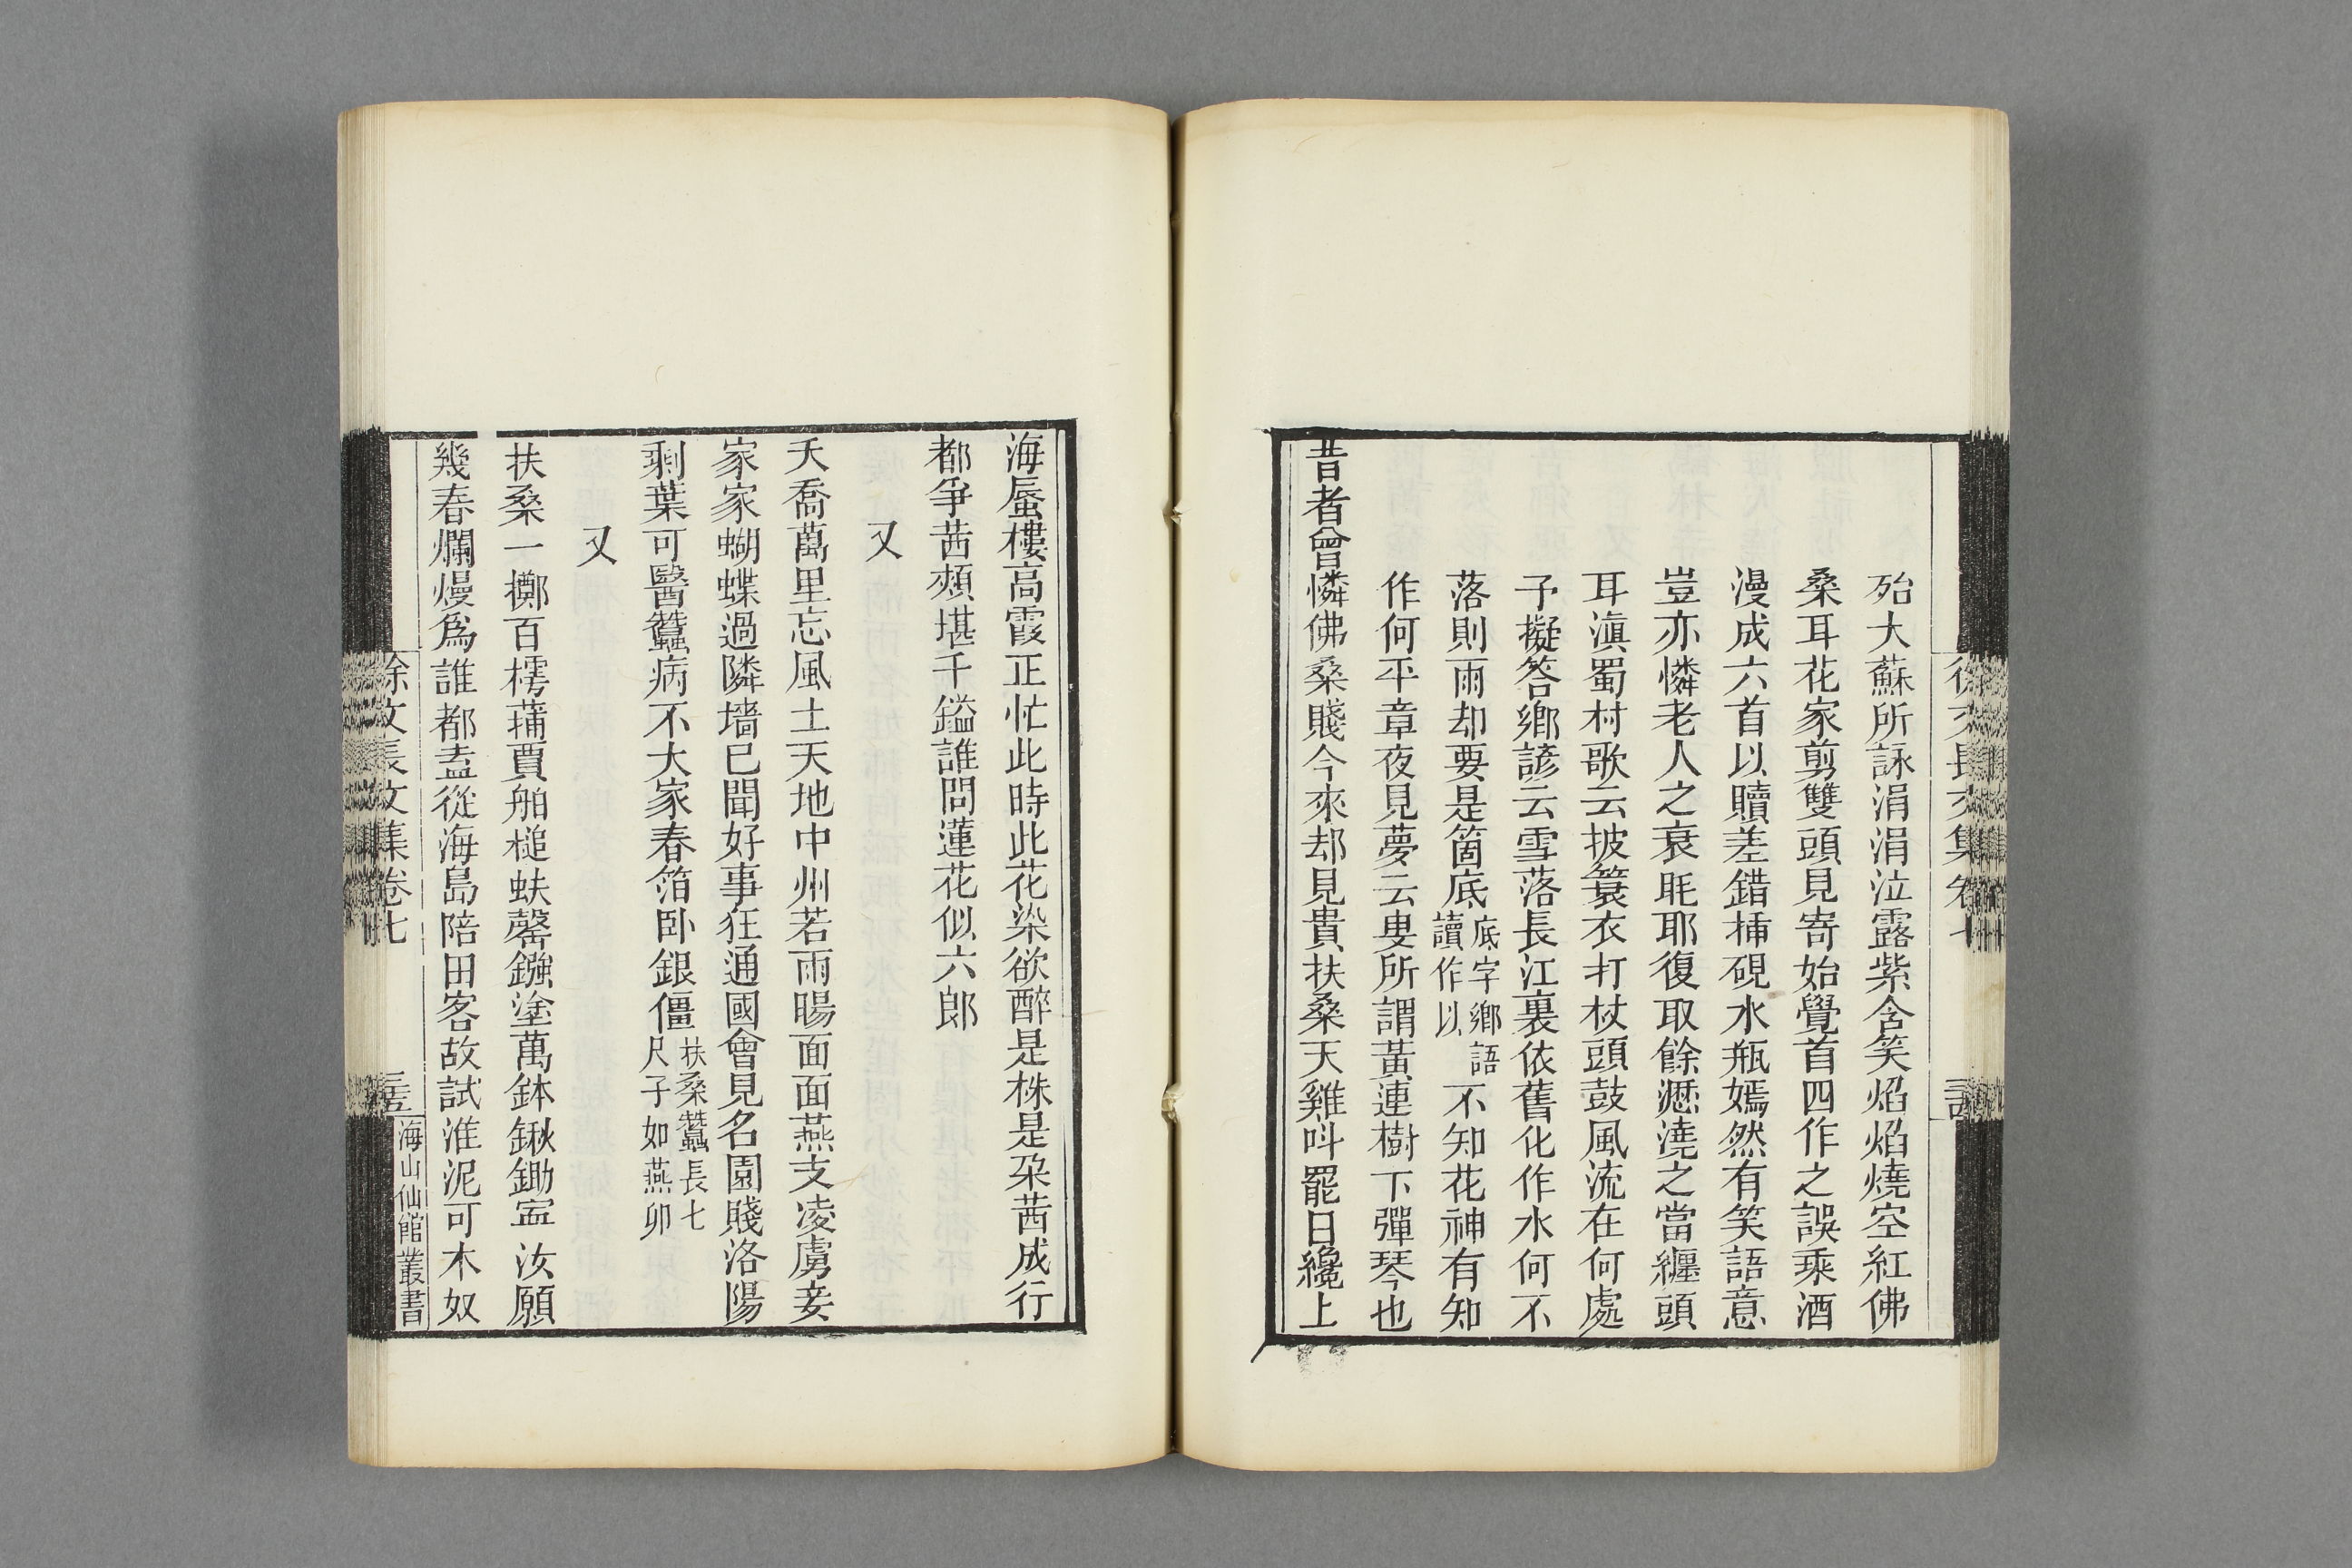 殆大蘇所詠涓涓泣露紫含笑焰焰燒空紅佛
桑耳花家剪雙頭見寄始覺首四作之誤乘酒
漫成六首以贖差錯揷硯水瓶嫣然有笑語意
豈亦憐老人之衰眊耶復取餘瀝澆之當纏頭
耳滇蜀村歌云披簑衣打杖頭鼓風流在何處
予擬答鄉諺云雪落長江裏依舊化作水何不
落則雨却要是箇底底字鄉語讀作以不知花神有知
作何平章夜見夢云叟所謂黃連樹下彈琴也
昔者曾憐佛桑賤今來却見貴扶桑天雞呌罷日纔上
海蜃樓高霞正忙此時此花染欲醉是株是朶茜成行
都爭茜頰堪千鎰誰問蓮花似六郎
又
夭喬萬里忘風土天地中州若雨暘面面燕支凌虜妾
家家蝴蝶過隣墻巳聞好事狂通國會見名園賤洛陽
剩葉可醫蠶病不大家春箔卧銀僵扶桑蠶長七尺子如燕卵
又
扶桑一擲百樗蒱賈舶槌蚨罄鏹塗萬鉢鍬鋤寍汝願
幾春爛熳爲誰都盍從海島陪田客故試淮泥可木奴
徐文長文集卷七
海山仙館叢書